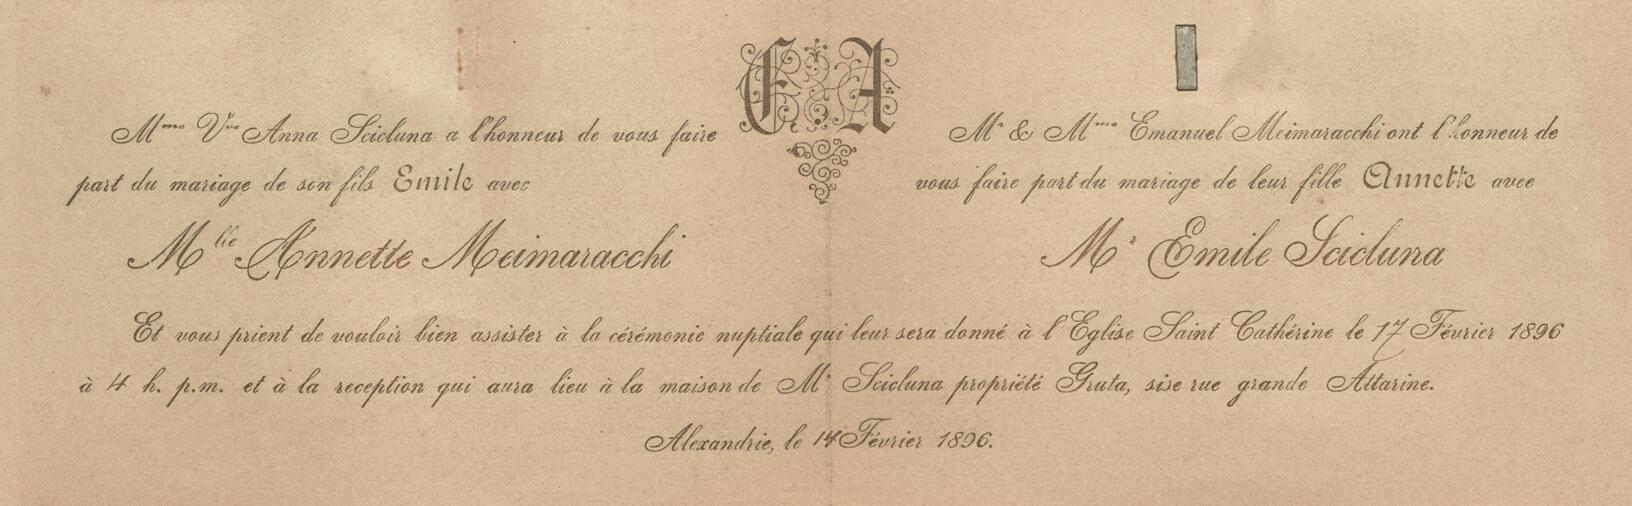 E A
Mme Vve Anna Scicluna a l'honneur de vous faire
part du mariage de son fils Emile avec
Mlle Annette Meimaracchi
Mr & Mme Emanuel Meimaracchi ont l'honneur de
vous faire part du mariage de leur fille Annette avec
Mr Emile Scicluna
Et vous prient de vouloir bien assister à la cérémonie nuptiale qui leur sera donné à l'Eglise Saint Cathérine le 17 Février 1896
à 4 h. p.m. et à la reception qui aura lieu à la maison de Mr Scicluna propriété Gruta, sise rue grande Attarine.
Alexandrie, le 14 Février 1896.